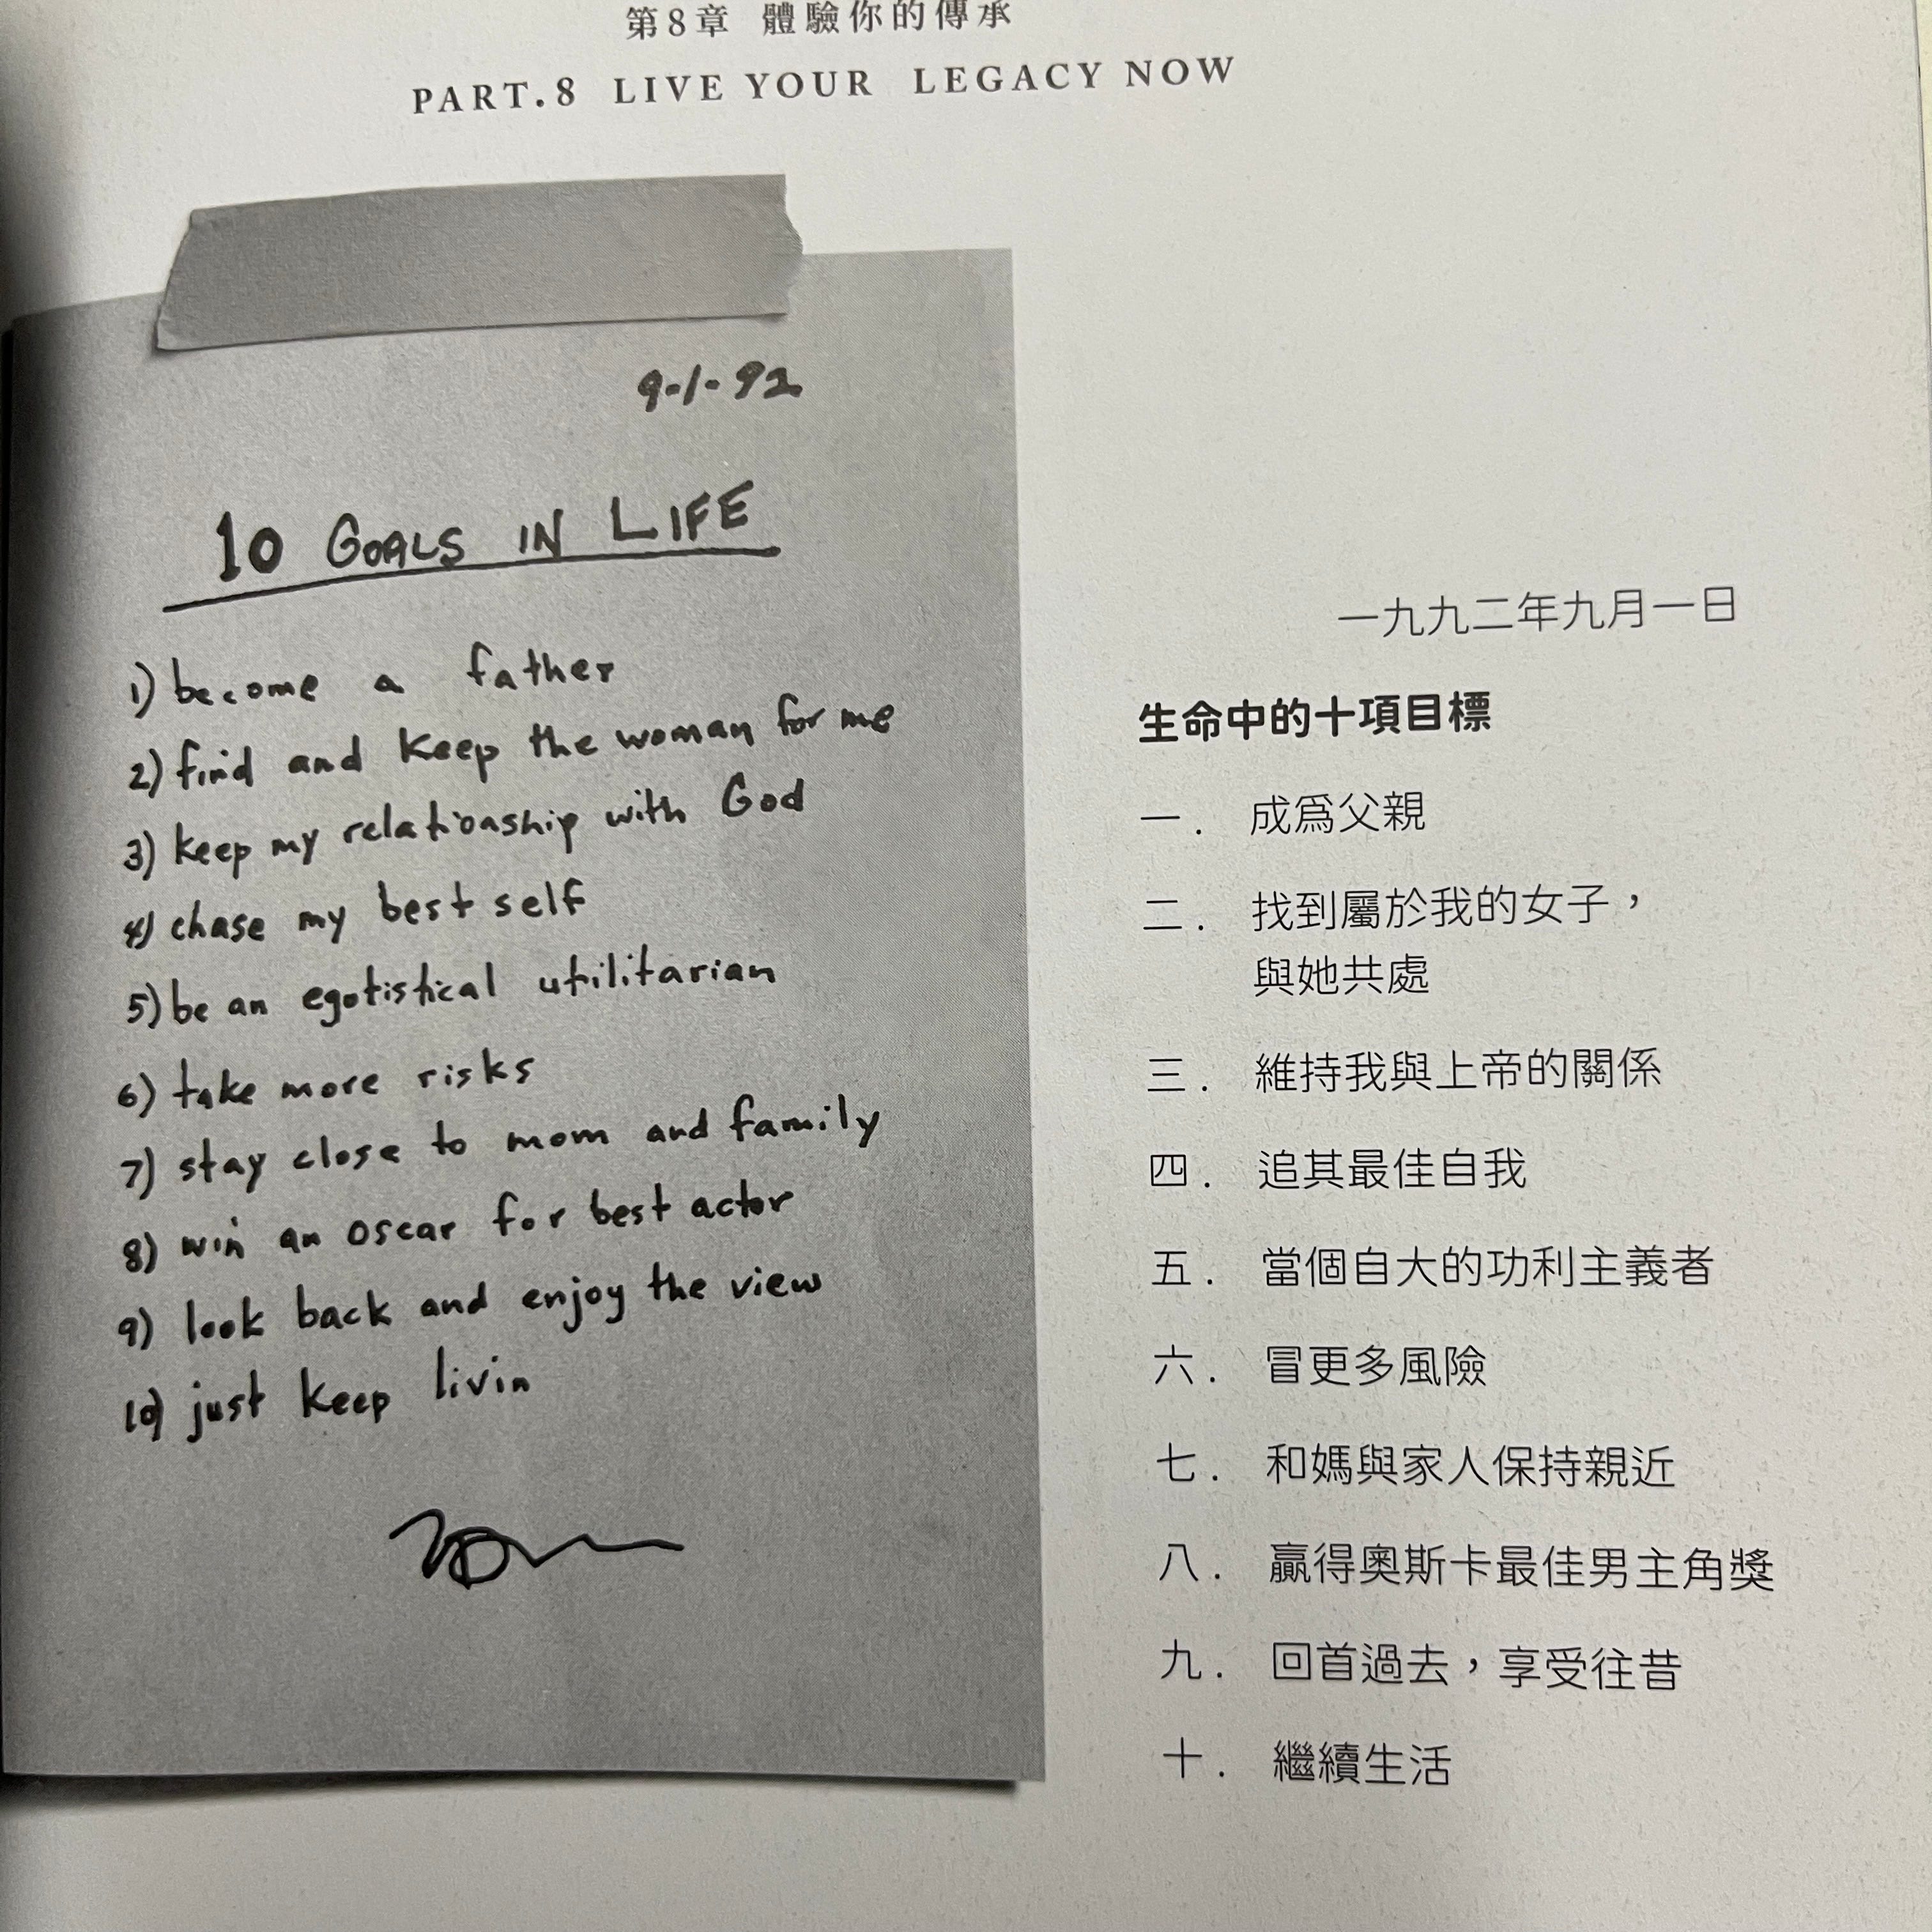 第8章 體驗你的傳承
PART.8 LIVE YOUR LEGACY NOW
9-1-92
10 GOALS IN LIFE
1) become a father
2) find and keep the woman for me
3) keep my relationship with God
4) chase my best self
5) be an egotistical utilitarian
6) take more risks
7) stay close to mom and family
8) win an oscar for best actor
9) look back and enjoy the view
10) just keep livin
一九九二年九月一日
生命中的十項目標
一. 成爲父親
二. 找到屬於我的女子，
與她共處
三. 維持我與上帝的關係
四. 追其最佳自我
五. 當個自大的功利主義者
六. 冒更多風險
七. 和媽與家人保持親近
八. 贏得奧斯卡最佳男主角獎
九. 回首過去，享受往昔
十. 繼續生活